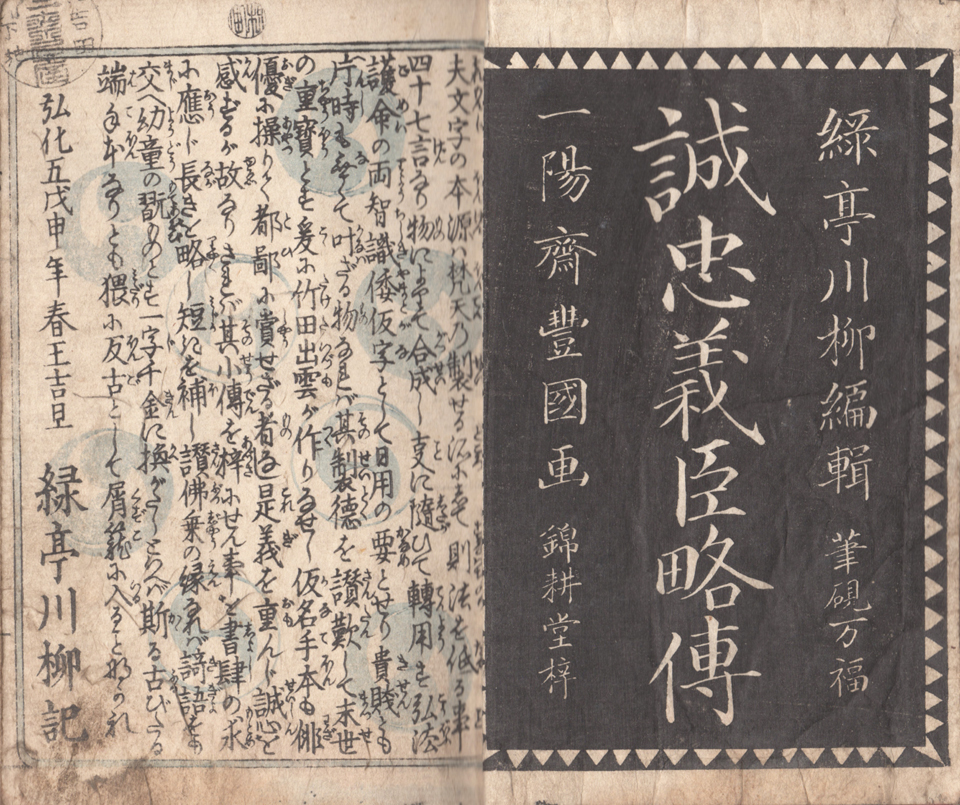 緑亭川柳編輯 筆硯万福
誠忠義臣略傳
一陽齋豐國画 錦耕堂梓
夫文字の本源ハ梵天乃製せる
四十七言なり物によそへて合成し支に随ひて轉用す弘法
護命の両智識倭仮字として日用の要とせり貴賎とも
片時も無くて叶ざる物なれバ其製徳を讃歎して末世
の重寳とす爰に竹田出雲が作りなせし仮名手本も俳
優に操りて都鄙に賞せざる者なし是義を重んじ誠心を
感ずるが故なりされバ其小傳を梓にせん事を書肆の求
に應じ長きを略し短きを補し讃佛乗の縁なれバ
交へ幼童の翫ものとす一字千金に換がたしといへバ斯る古びたる
端手本なりとも猥に反古として屑籠に入ること勿れ
弘化五戊申年春王吉旦
緑亭川柳記